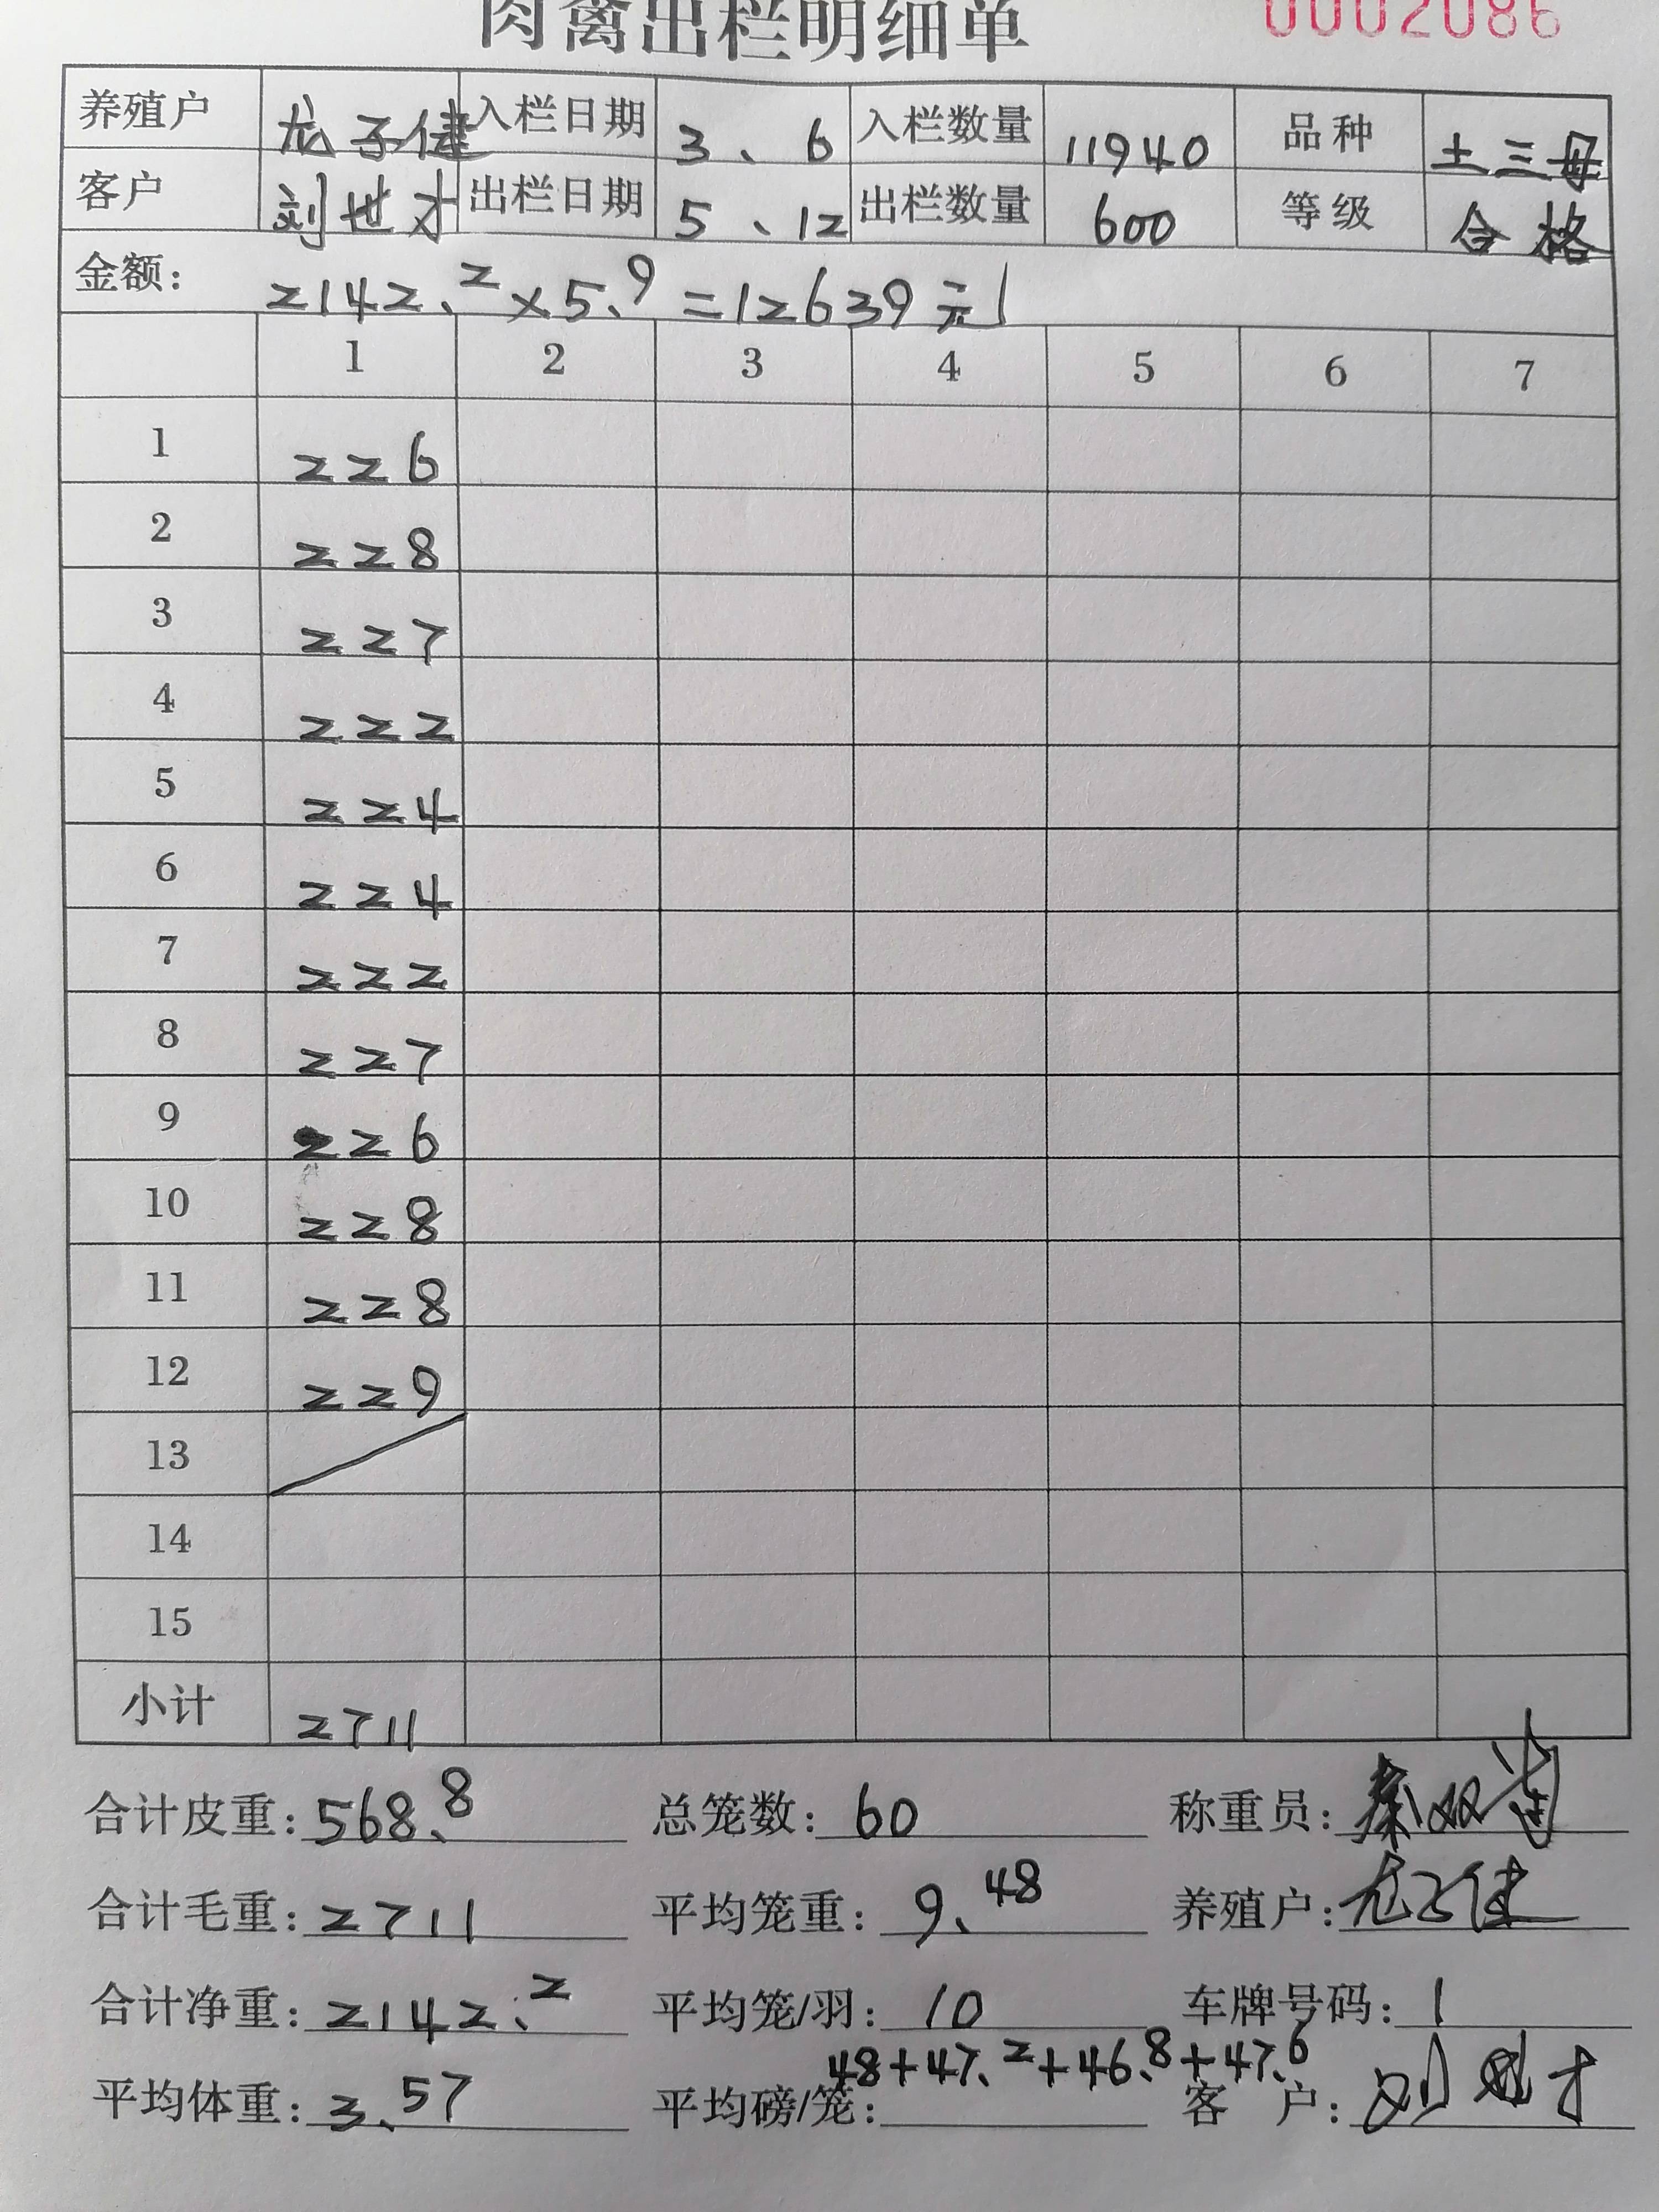 肉禽出栏明细单 0002086
养殖户 龙子健 入栏日期 3、6 入栏数量 11940 品种 土三母
客户 刘世才 出栏日期 5、12 出栏数量 600 等级 合格
金额: 2142.2×5.9=12639元
1 2 3 4 5 6 7
1 226
2 228
3 227
4 222
5 224
6 224
7 222
8 227
9 226
10 228
11 228
12 229
13
14
15
小计 2711
合计皮重: 568.8 总笼数: 60 称重员: 秦双
合计毛重: 2711 平均笼重: 9.48 养殖户: 龙子健
合计净重: 2142.2 平均笼/羽: 10 车牌号码: 1
48+47.2+46.8+47.6
平均体重: 3.57 平均磅/笼: 客户: 刘世才